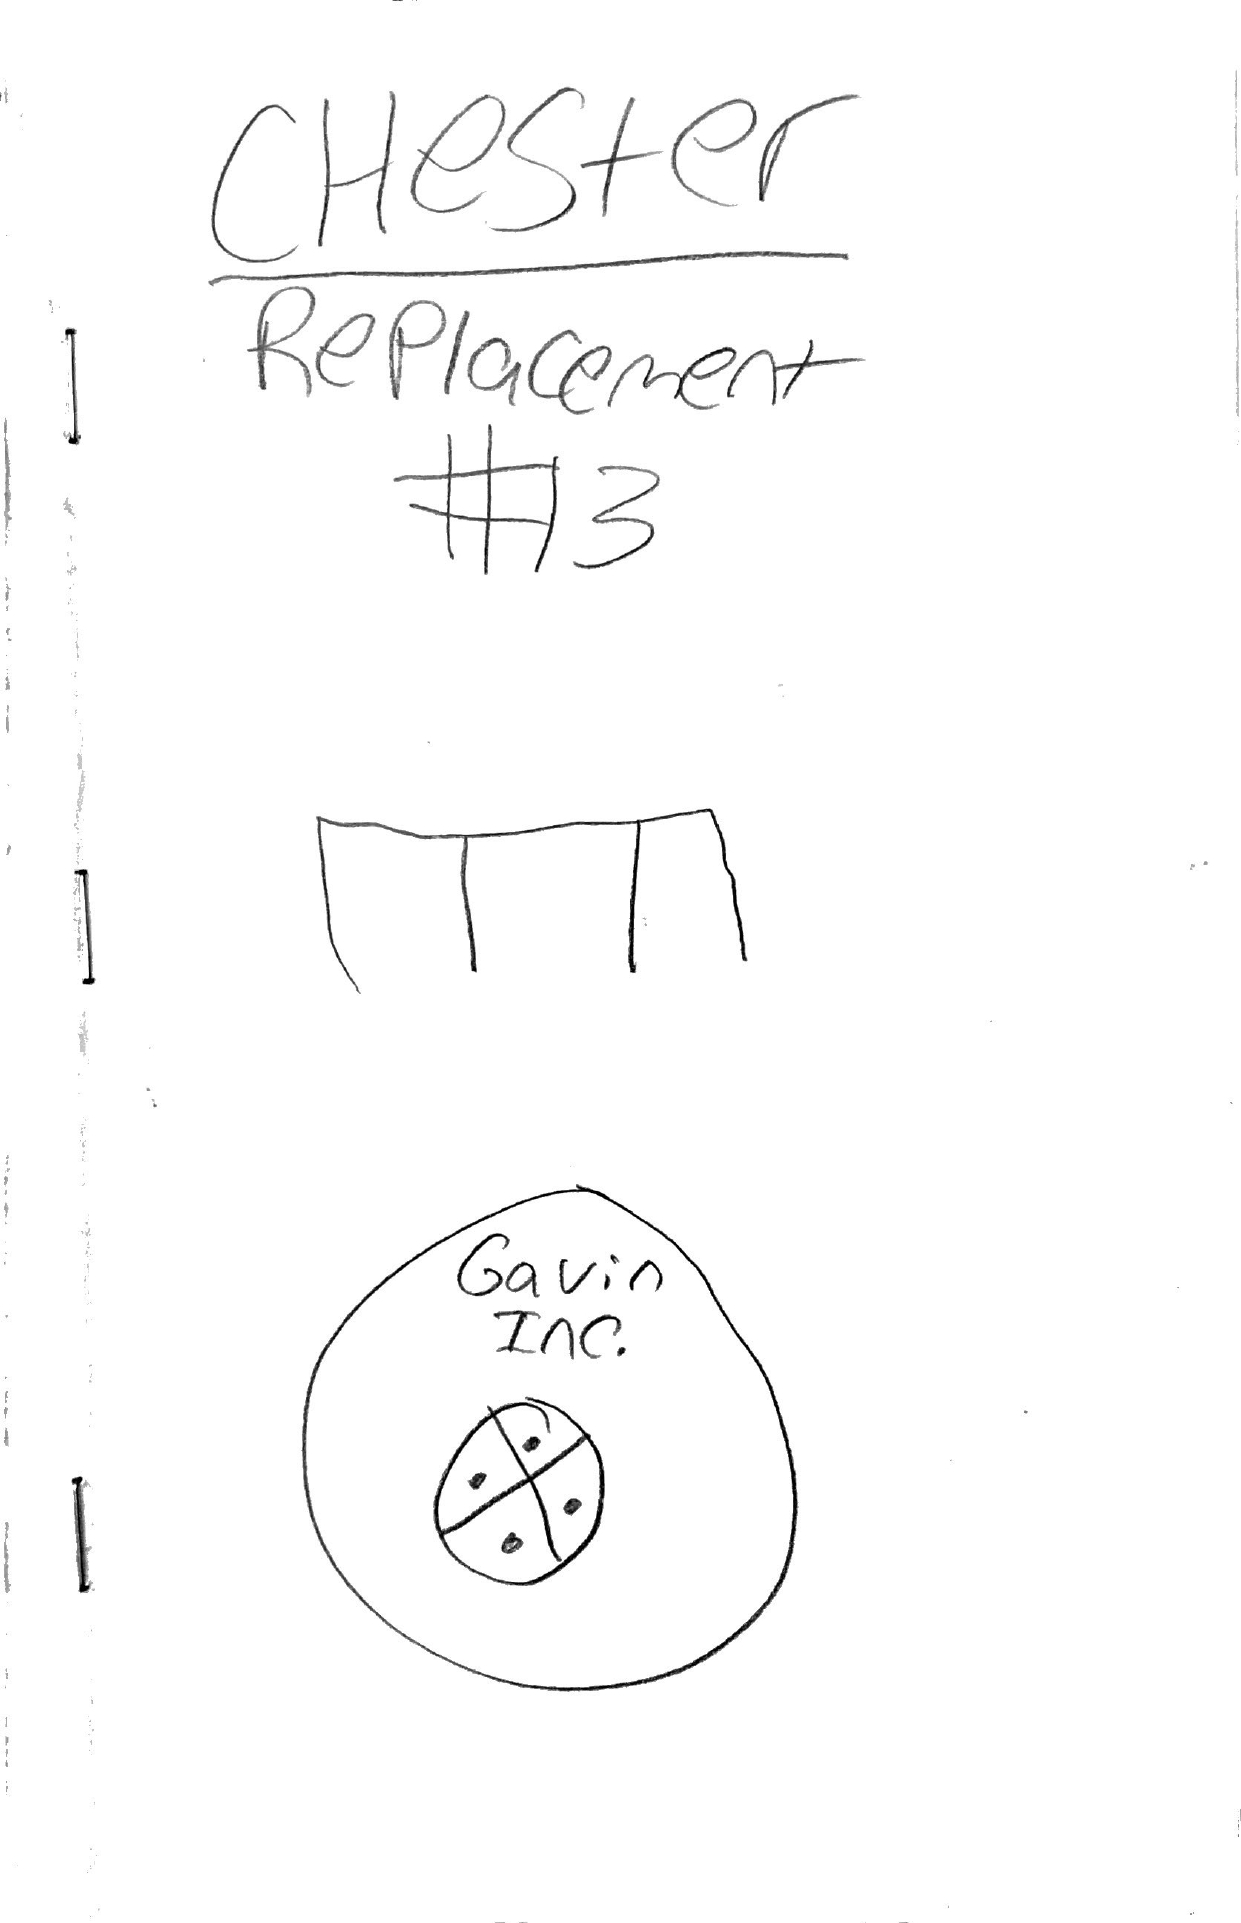 CHester
Replacement
#13
Gavin
Inc.